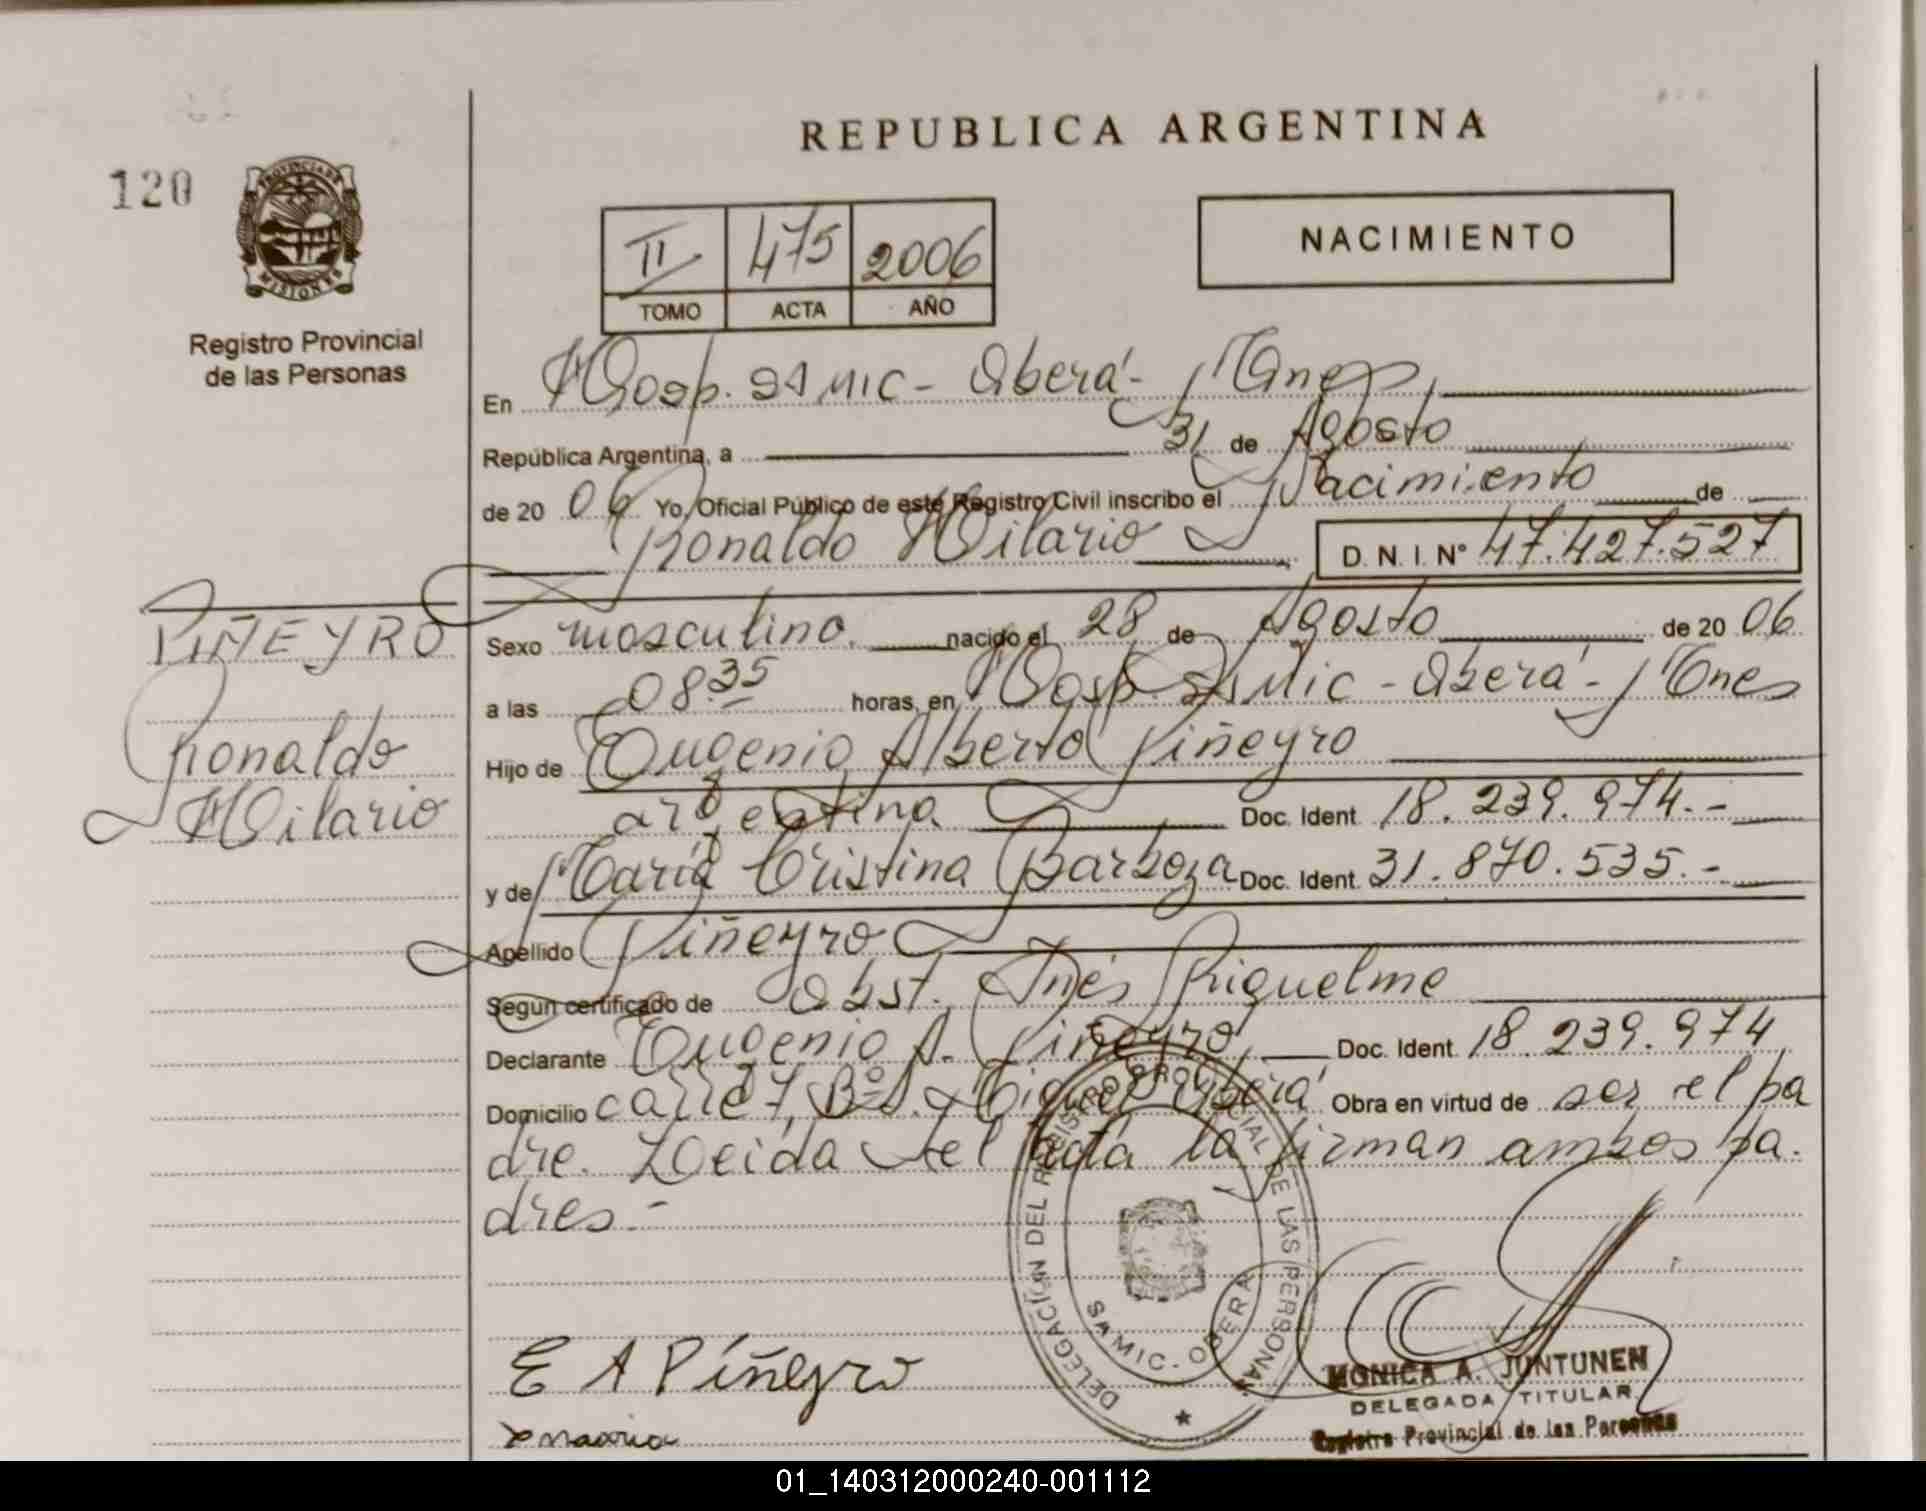 REPUBLICA ARGENTINA
120
PROVINCIA DE
MISIONES
Registro Provincial
de las Personas
II 475 2006
TOMO ACTA AÑO
NACIMIENTO
En Hosp. SAMIC - Oberá - Mnes
República Argentina, a 31 de Agosto
de 20 06 Yo, Oficial Público de este Registro Civil inscribo el Nacimiento de
Ronaldo Hilario D. N. I. N° 47.427.527
PIÑEYRO
Ronaldo
Hilario
Sexo masculino. nacido el 28 de Agosto de 20 06
a las 08.35 horas, en Hosp. SAMIC - Oberá - Mnes
Hijo de Eugenio Alberto Piñeyro
argentina Doc. Ident. 18.239.974.-
y de María Cristina Barboza Doc. Ident. 31.870.535.-
Apellido Piñeyro
Según certificado de Obst. Inés Riquelme
Declarante Eugenio A. Piñeyro, Doc. Ident. 18.239.974
Domicilio calle 7, Bº S. Miguel Oberá Obra en virtud de ser el pa
dre. Leída el acta la firman ambos pa.
dres.-
DELEGACIÓN DEL REGISTRO PROVINCIAL DE LAS PERSONAS
SAMIC - OBERA
E A Piñeyro
maria
MONICA A. JUNTUNEN
DELEGADA TITULAR
Registro Provincial de las Personas
01_140312000240-001112